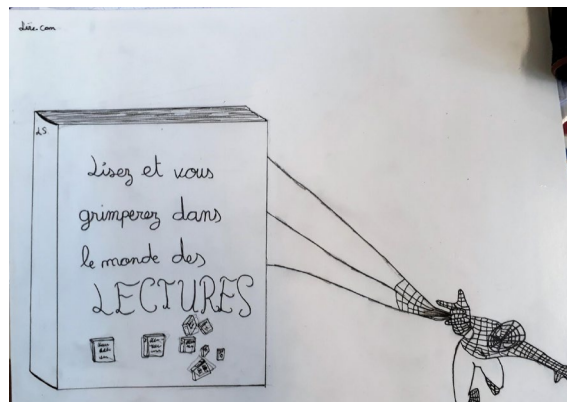 Lire.com
LS.
Lisez et vous
grimperez dans
le monde des
LECTURES